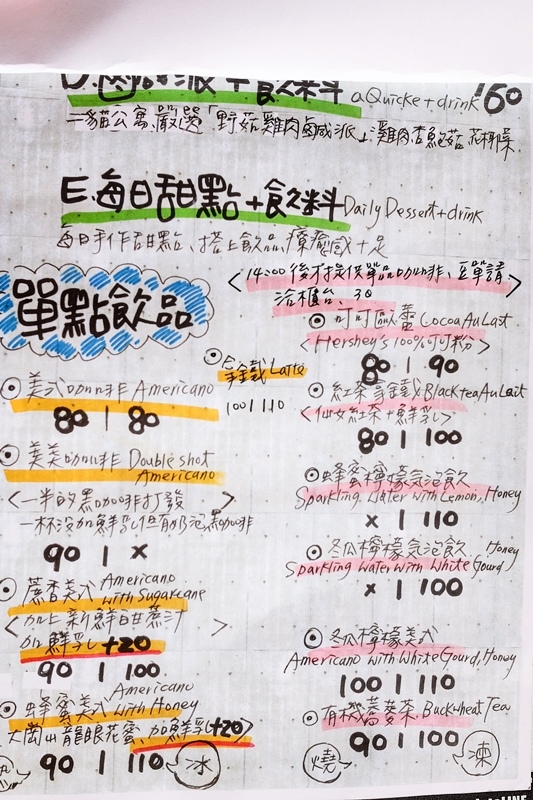 D.鹹派+飲料 a Quicke+drink 160
一貓公寓嚴選「野菇雞肉鹹派」:雞肉杏鮑菇
E.每日甜點+飲料 Daily Dessert+drink
每日手作甜點、搭上飲品,療癒感十足
單點飲品
<14:00後才提供單品咖啡,豆單請
洽櫃台、3Q>
拿鐵 Latte
100 | 110
美式咖啡 Americano
80 | 80
美美咖啡 Double shot
Americano
<一半的黑咖啡打發
一杯沒加鮮乳但有奶泡黑咖啡>
90 | x
蔗香美式 Americano
with Sugarcane
<加上新鮮甘蔗汁
加鮮乳+20>
90 | 100
蜂蜜美式 Americano
with Honey
大崗山龍眼花蜜、加鮮乳+20>
90 | 110 冰
可可歐蕾 Cocoa Au Last
<Hershey's 100%可可粉>
80 | 90
紅茶拿鐵 Black tea Au Lait
<仙女紅茶+鮮乳>
80 | 100
蜂蜜檸檬氣泡飲
Sparkling Water with Lemon, Honey
x | 110
冬瓜檸檬氣泡飲 Honey
Sparkling Water with White Gourd
x | 100
冬瓜檸檬美式
Americano with White Gourd, Honey
100 | 110
有機蕎麥茶 Buckwheat Tea
90 | 100
燒 凍